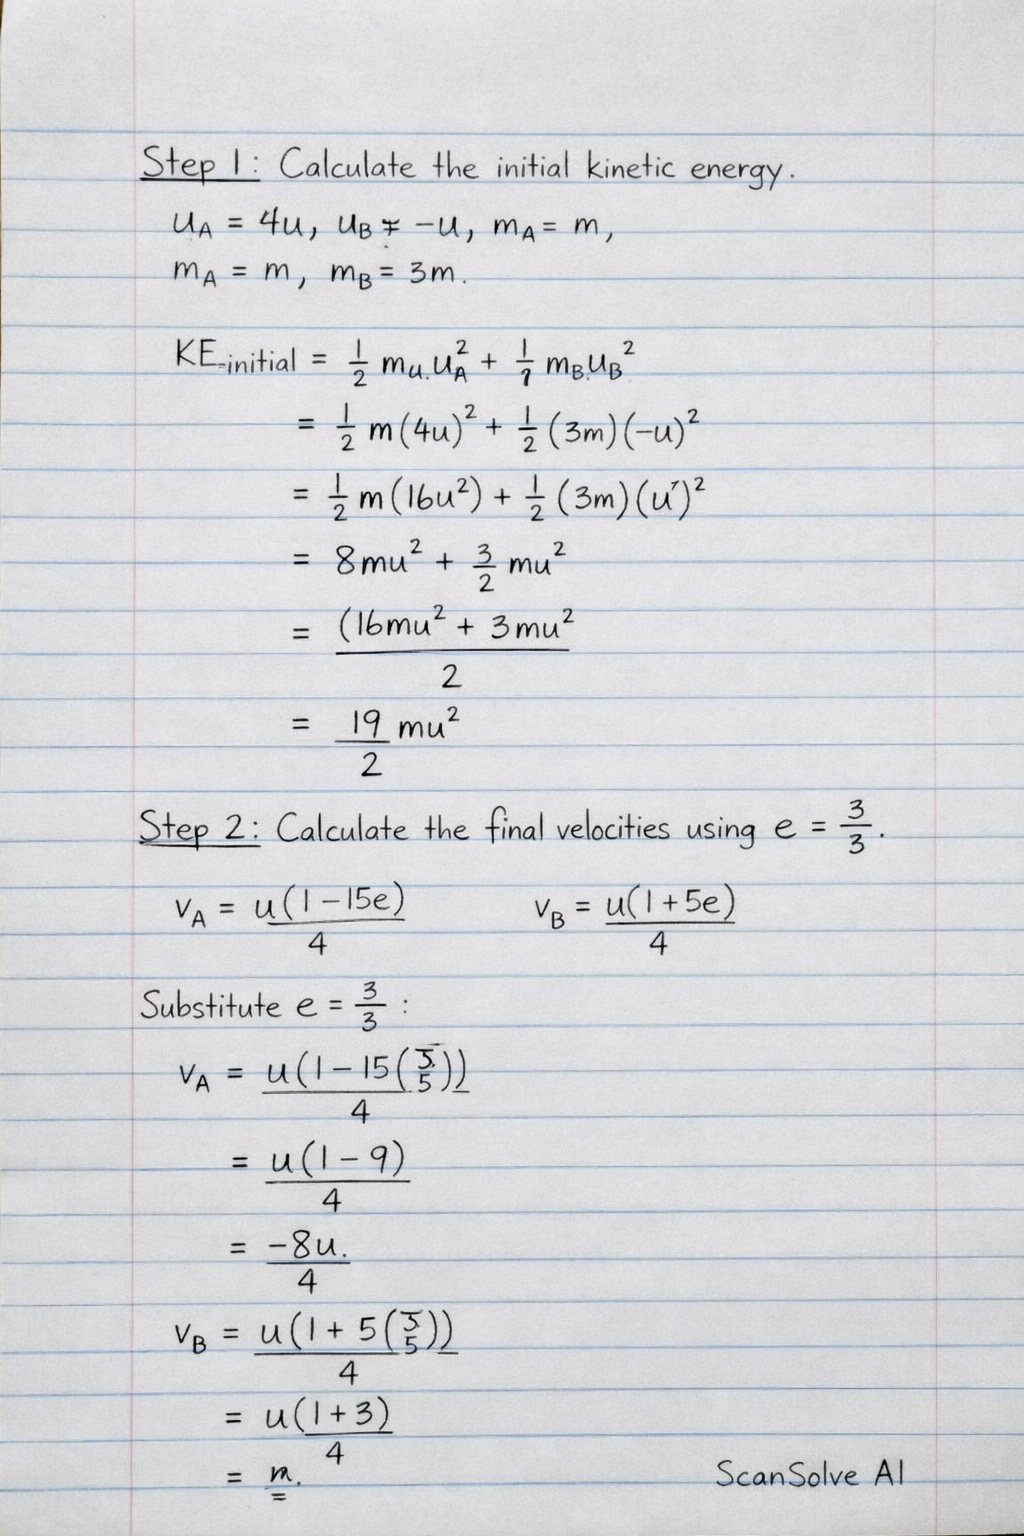 Step 1: Calculate the initial kinetic energy.
u_A = 4u, u_B ≠ -u, m_A = m,
m_A = m, m_B = 3m.
KE-initial = 1/2 m_u. u_A^2 + 1/7 m_B. u_B^2
= 1/2 m(4u)^2 + 1/2 (3m)(-u)^2
= 1/2 m(16u^2) + 1/2 (3m)(u')^2
= 8mu^2 + 3/2 mu^2
= (16mu^2 + 3mu^2 / 2
= 19/2 mu^2
Step 2: Calculate the final velocities using e = 3/3.
v_A = u(1-15e)/4 v_B = u(1+5e)/4
Substitute e = 3/3 :
v_A = u(1-15(3/5))/4
= u(1-9)/4
= -8u./4
v_B = u(1+5(3/5))/4
= u(1+3)/4
= m.
ScanSolve AI